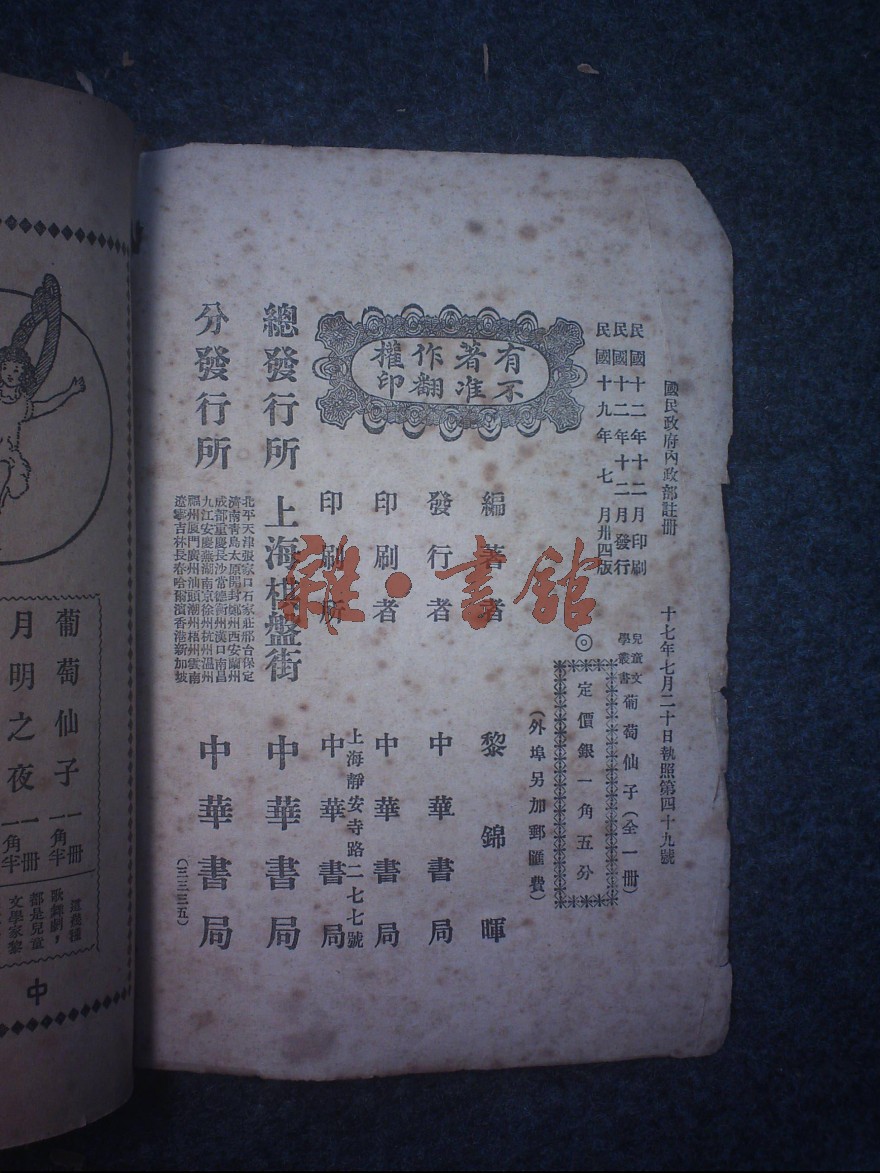 國民政府內政部註冊 十七年七月二十日執照第四十九號
民國十二年十二月印刷
民國十二年十二月發行
民國十九年七月卅四版
兒童文學叢書 葡萄仙子(全一冊)
◎定價銀一角五分
(外埠另加郵匯費)
有著作權
不准翻印
編著者 黎錦暉
發行者 中華書局
印刷者 中華書局
上海靜安寺路二七七號
印刷所 中華書局
總發行所 上海棋盤街 中華書局
分發行所
北平天津張家口石家莊邢台保定
濟南青島太原開封鄭州西安蘭州
成都重慶長沙常德衡州漢口南昌
九江安慶蕪湖南京徐州杭州溫州
福州廈門廣州汕頭潮州梧州雲南
遼寧吉林長春哈爾濱香港新加坡
中華書局
(三三三五)
雜·書館
葡萄仙子 一冊 一角半
月明之夜 一冊 一角半
這幾種
歌舞劇,
都是兒童
文學家黎
中